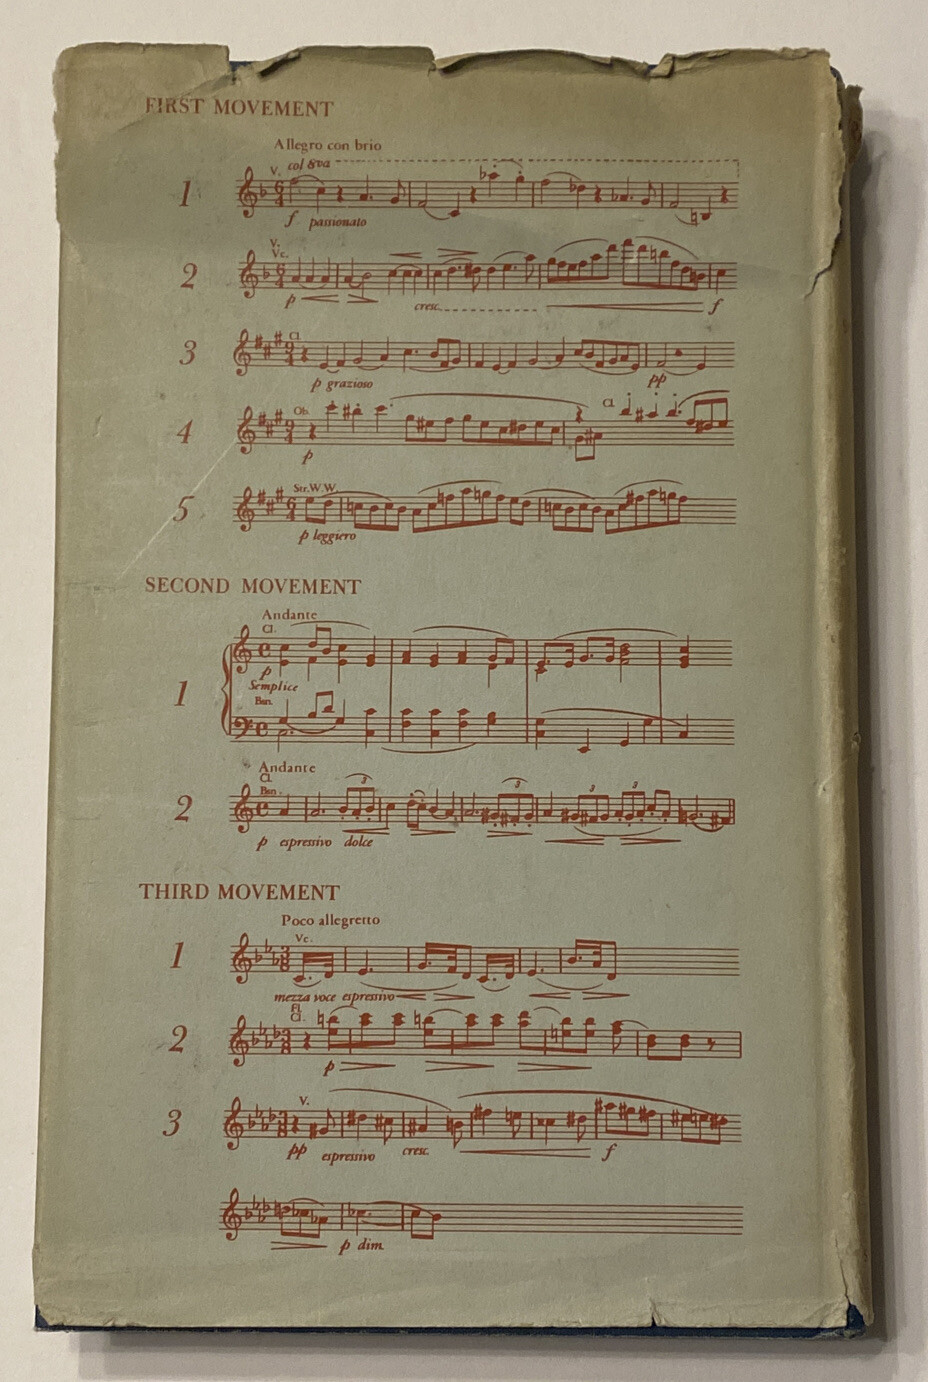 FIRST MOVEMENT
Allegro con brio
V. col 8va
1
f passionato
V.
Vc.
2
p
cresc.
f
Cl.
3
p grazioso
pp
Ob.
Cl.
4
p
Str.W.W.
5
p leggiero
SECOND MOVEMENT
Andante
Cl.
p
Semplice
1
Bsn.
Andante
Cl.
Bsn.
3 3 3 3
2
p espressivo dolce
THIRD MOVEMENT
Poco allegretto
Vc.
1
mezza voce espressivo
Fl.
Cl.
2
p
V.
3
pp espressivo cresc. f
p dim.